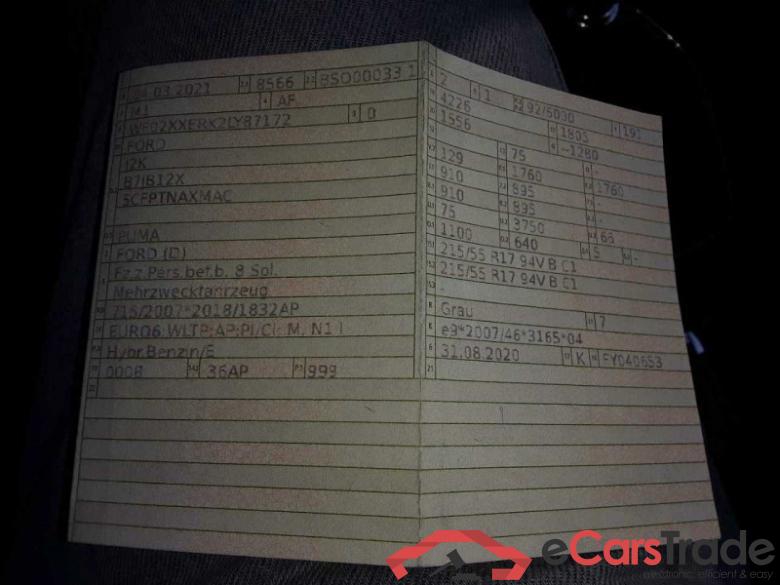 04.03.2021 8566 BSO00033 1
M1 AF
WF02XXERK2LY87172 0
FORD
J2K
B7JB12X
5CFPTNAXMAC
PUMA
FORD (D)
Fz.z.Pers.bef.b. 8 Spl.
Mehrzweckfahrzeug
715/2007*2018/1832AP
EURO6;WLTP;AP;PI/CI; M, N1 I
Hybr.Benzin/E
0008 36AP 999
2 1 92/6000 191
4226 1805
1556 ~1280
129 75 -
910 1760 1760
910 895 -
75 895 -
1100 3750 66
640 5 -
215/55 R17 94V B C1
215/55 R17 94V B C1
-
Grau 7
e9*2007/46*3165*04
31.08.2020 K FY040653
eCarsTrade
electronic, efficient & easy